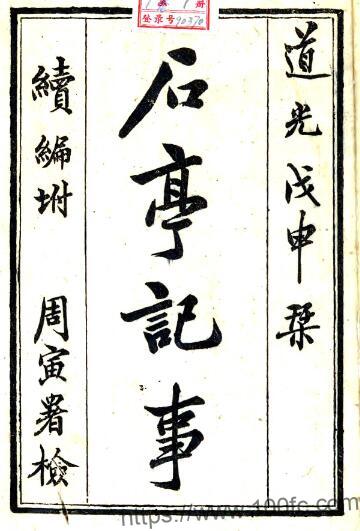 道光戊申栞
石亭記事
續編坿
周寅署檢
登录号90370
https://www.100fc.com